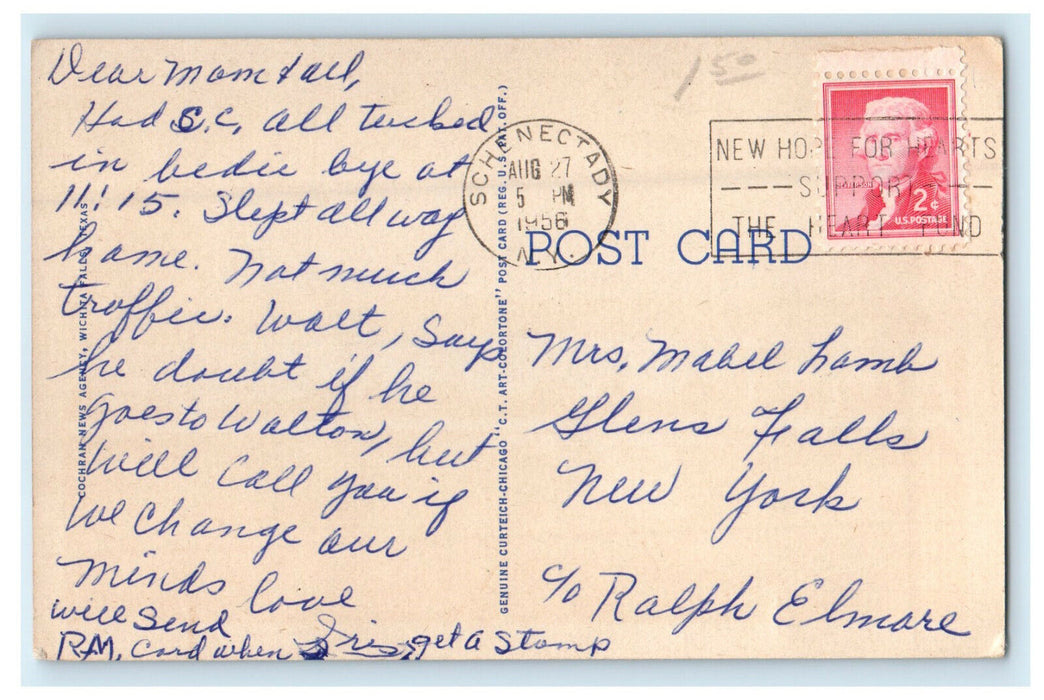 Dear Mom & all,
Had S.C. all tucked
in bedie bye at
11:15. Slept all way
home. Not much
traffic. Walt, says
he doubt if he
goes to Walton, but
will call you if
we change our
minds love
Iris
will send
RM, card when get a stamp
COCHRAN NEWS AGENCY, WICHITA FALLS, TEXAS
GENUINE CURTEICH-CHICAGO "C.T. ART-COLORTONE" POST CARD (REG. U.S. PAT. OFF.)
1 50
SCHENECTADY
AUG 27
5 PM
1956
N.Y.
NEW HOPE FOR HEARTS
SUPPORT
THE HEART FUND
2¢
U.S. POSTAGE
POST CARD
Mrs, Mabel Lamb
Glens Falls
New York
c/o Ralph Elmore